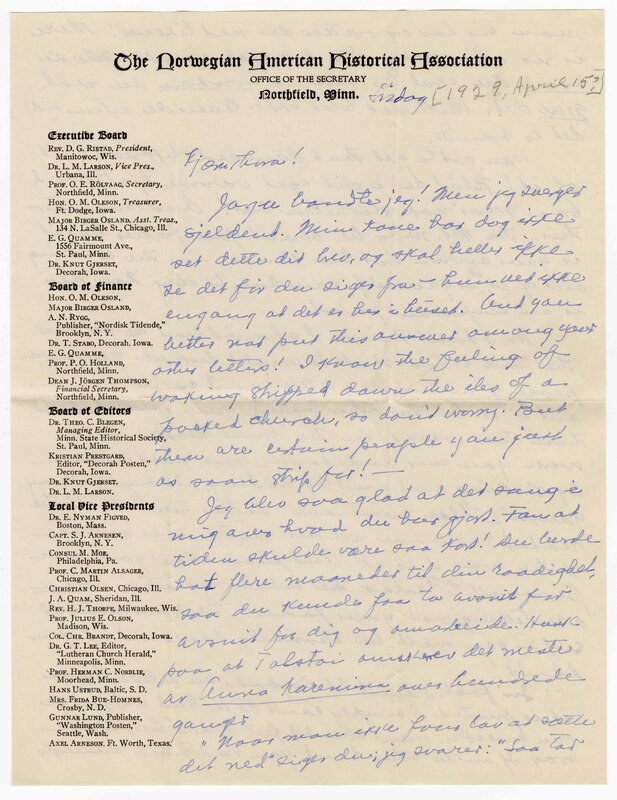 The Norwegian American Historical Association
OFFICE OF THE SECRETARY
Northfield, Minn.
Tirsdag [1929, April 15?]
Executive Board
REV. D. G. RISTAD, President,
Manitowoc, Wis.
DR. L. M. LARSON, Vice Pres.,
Urbana, Ill.
PROF. O. E. RÖLVAAG, Secretary,
Northfield, Minn.
HON. O. M. OLESON, Treasurer,
Ft. Dodge, Iowa.
MAJOR BIRGER OSLAND, Asst. Treas.,
134 N. LaSalle St., Chicago, Ill.
E. G. QUAMME,
1556 Fairmount Ave.,
St. Paul, Minn.
DR. KNUT GJERSET,
Decorah, Iowa.
Board of Finance
HON. O. M. OLESON,
MAJOR BIRGER OSLAND,
A. N. RYGG,
Publisher, "Nordisk Tidende,"
Brooklyn, N. Y.
DR. T. STABO, Decorah, Iowa.
E. G. QUAMME,
PROF. P. O. HOLLAND,
Northfield, Minn.
DEAN J. JÖRGEN THOMPSON,
Financial Secretary,
Northfield, Minn.
Board of Editors
DR. THEO. C. BLEGEN,
Managing Editor,
Minn. State Historical Society,
St. Paul, Minn.
KRISTIAN PRESTGARD,
Editor, "Decorah Posten,"
Decorah, Iowa.
DR. KNUT GJERSET.
DR. L. M. LARSON.
Local Vice Presidents
DR. E. NYMAN FIGVED,
Boston, Mass.
CAPT. S. J. ARNESEN,
Brooklyn, N. Y.
CONSUL M. MOE,
Philadelphia, Pa.
PROF. C. MARTIN ALSAGER,
Chicago, Ill.
CHRISTIAN OLSEN, Chicago, Ill.
J. A. QUAM, Sheridan, Ill.
REV. H. J. THORPE, Milwaukee, Wis.
PROF. JULIUS E. OLSON,
Madison, Wis.
COL. CHE BRANDT, Decorah, Iowa.
DR. G. T. LEE, Editor,
"Lutheran Church Herald,"
Minneapolis, Minn.
PROF. HERMAN C. NORDLIE,
Moorhead, Minn.
HANS USTRUD, Baltic, S. D.
MRS. FRIDA BUE-HOMNES,
Crosby, N. D.
GUNNAR LUND, Publisher,
"Washington Posten,"
Seattle, Wash.
AXEL ARNESON. Ft. Worth, Texas.
Kjære
Ja nu bandte jeg! Men jeg sverger
sjeldent. Min kone har dog ikke
set dette dit brev, og skal heller ikke
se det før du siger fra — hun vet ikke
engang at det er her i huset. And you
better not put this answer among your
other letters! I know the feeling of
walking stripped down the iles of a
packed church, so don't worry. But
there are certain people you just
as soon strip for! —
Jeg blev saa glad at det sang i
mig over hvad du har gjort. Fan at
tiden skulde være saa kort! Du burde
hat flere maaneder til din raadighet,
saa du kunde faa ta avsnit for
avsnit for dig og omarbeide. Husk
paa at Tolstoi omskrev det meste
av Anna Karenina over hundrede
ganger
"Naar man ikke faar lov at sætte
det ned" siger du; jeg svarer: "Saa tar